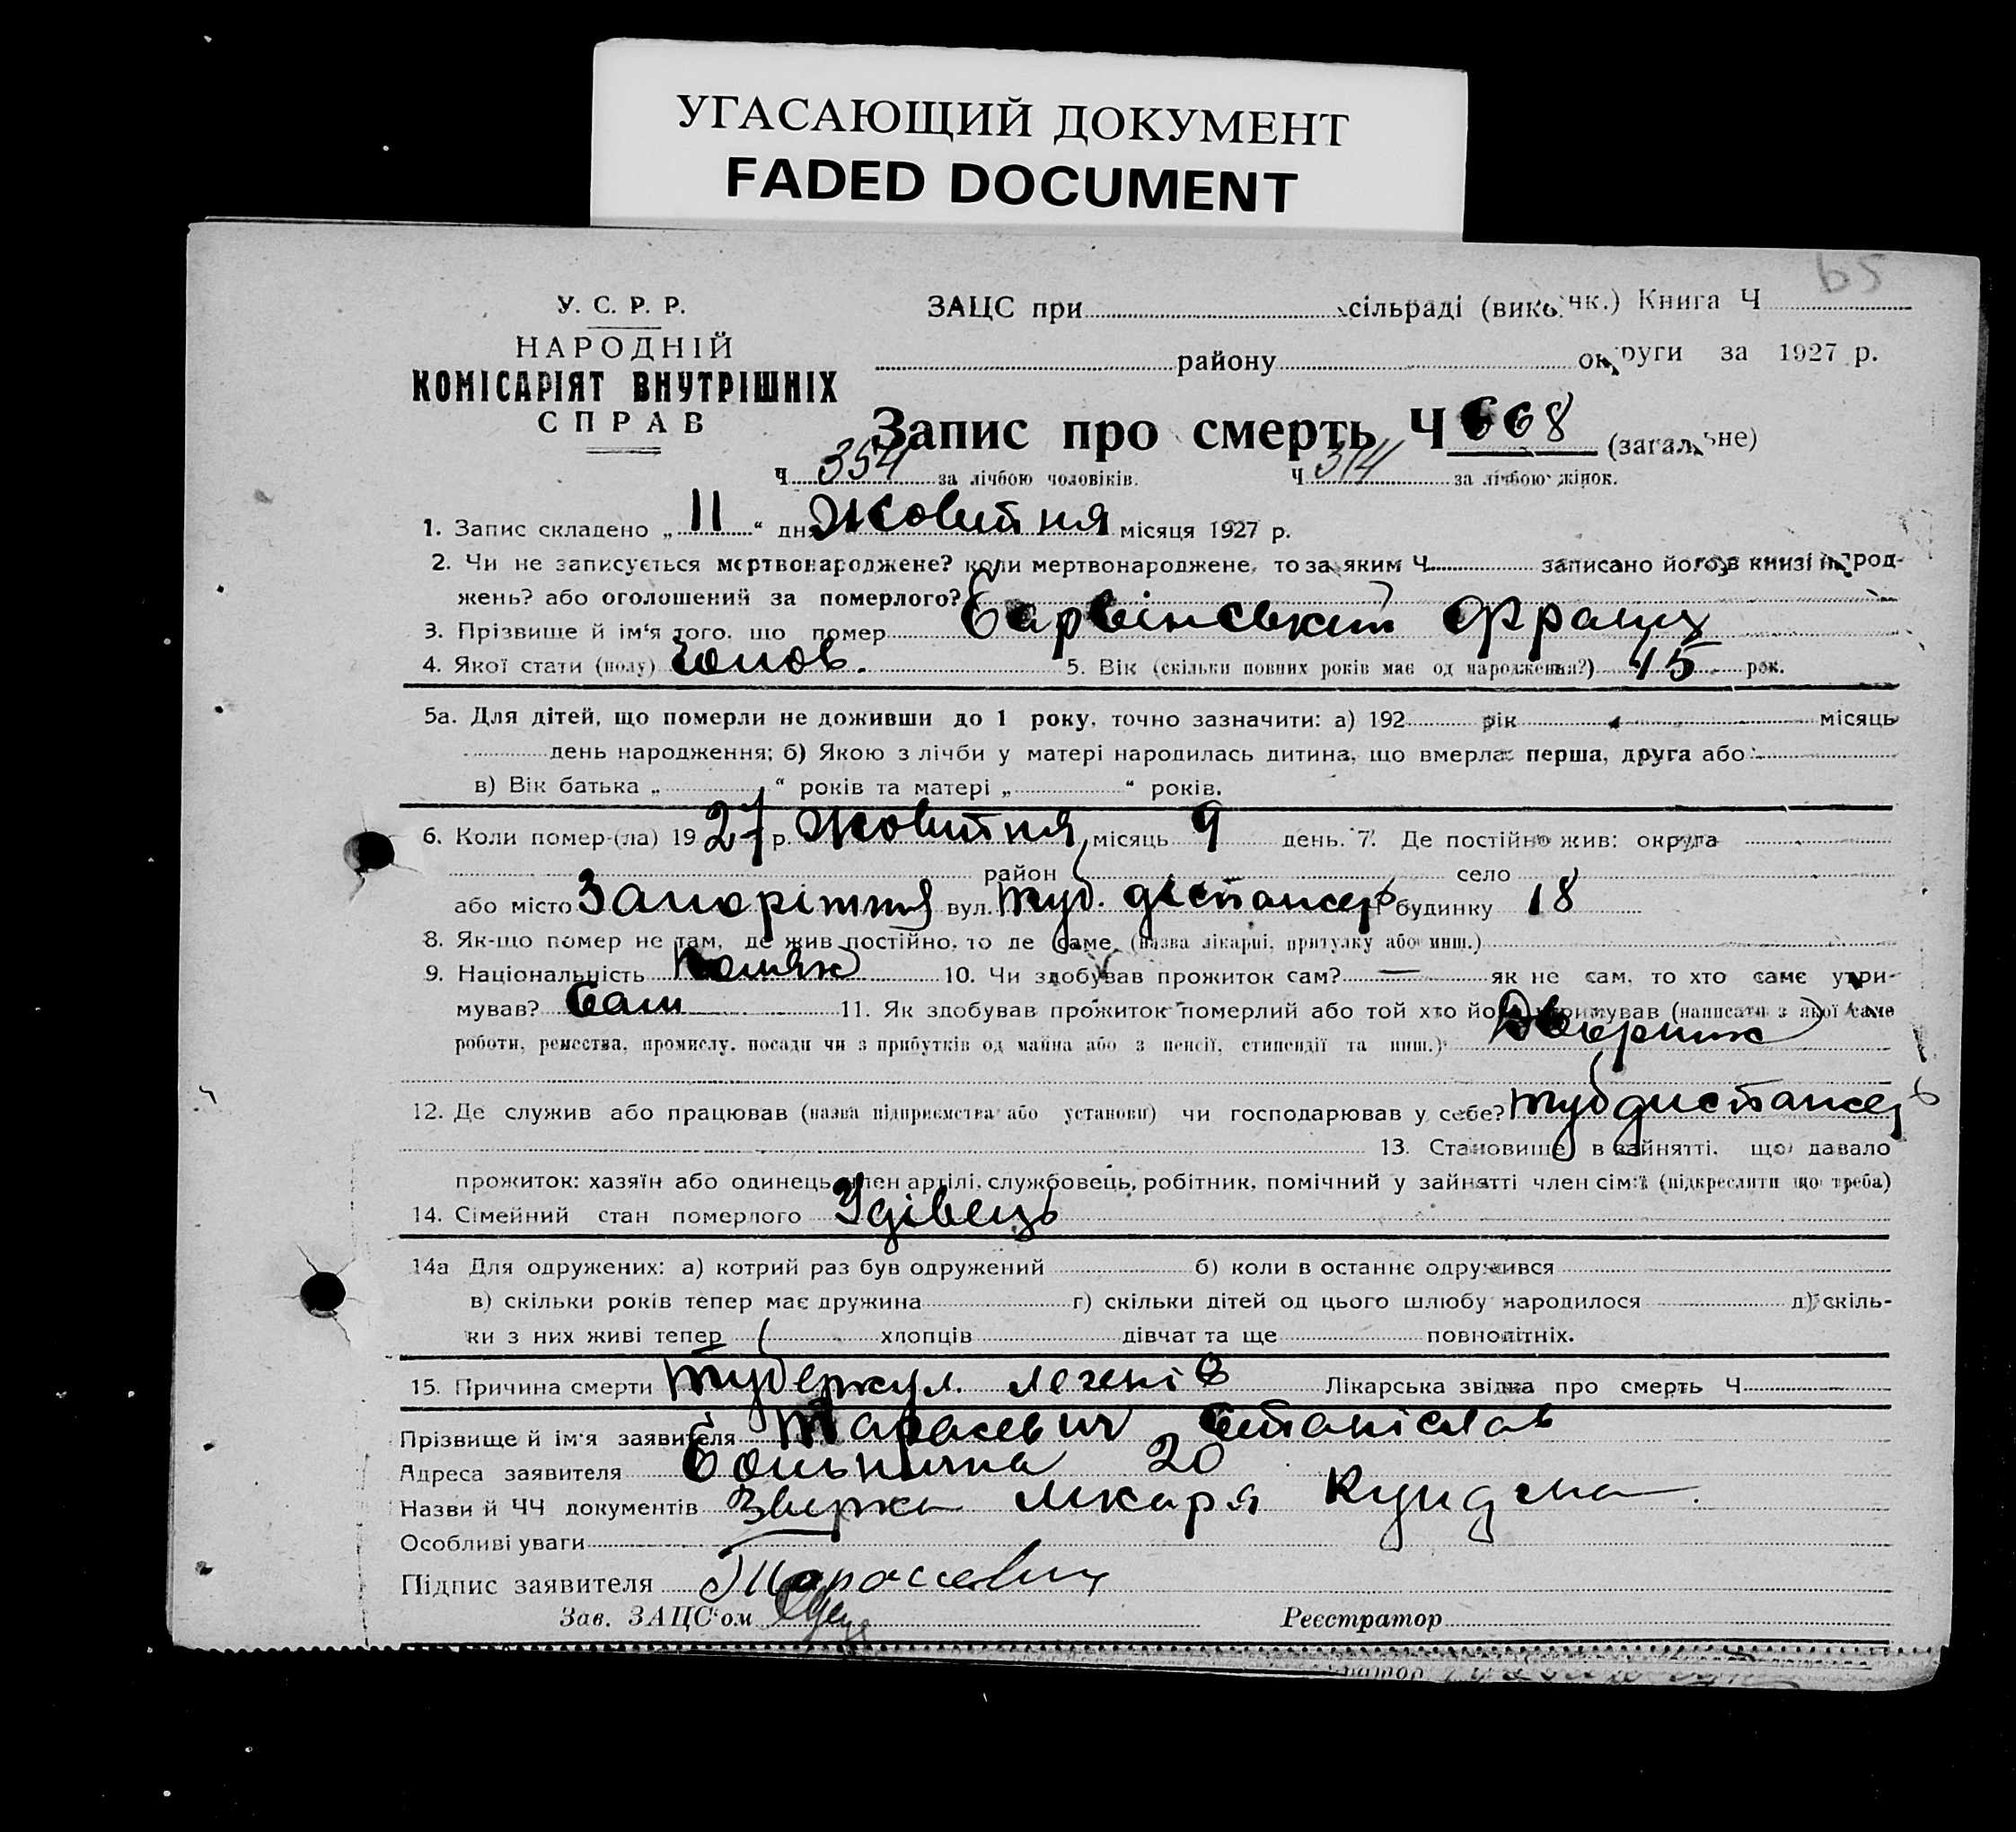 УГАСАЮЩИЙ ДОКУМЕНТ
FADED DOCUMENT
У. С. Р. Р.
НАРОДНІЙ
КОМІСАРІЯТ ВНУТРІШНІХ
СПРАВ
ЗАЦС при сільраді (викон.) Книга Ч
району округи за 1927 р.
Запис про смерть Ч 668 (загальне)
Ч 354 за лічбою чоловіків. Ч 314 за лічбою жінок.
1. Запис складено „ 11 “ дня Жовтня місяця 1927 р.
2. Чи не записується мертвонароджене? коли мертвонароджене, то за яким Ч записано його в книзі народ-
жень? або оголошений за померлого?
3. Прізвище й ім'я того, що помер Барвінський Франц
4. Якої стати (полу) Чолов. 5. Вік (скільки повних років має од народження?) 45 рок.
5а. Для дітей, що померли не доживши до 1 року, точно зазначити: а) 192 рік місяць
день народження; б) Якою з лічби у матері народилась дитина, що вмерла: перша, друга або
в) Вік батька „ “ років та матері „ “ років.
6. Коли помер-(ла) 1927 р. Жовтня місяць 9 день. 7. Де постійно жив: округа
район село
або місто Запоріжжя вул. туб. діспансер будинку 18
8. Як-що помер не там, де жив постійно, то де саме (назва лікарні, притулку або инш.)
9. Національність Поляк 10. Чи здобував прожиток сам? — як не сам, то хто саме утри-
мував? Сам 11. Як здобував прожиток померлий або той хто його утримував (написати з якої саме
роботи, ремества, промислу, посади чи з прибутків од майна або з пенсії, стипендії та инш.) Дворник
12. Де служив або працював (назва підприємства або установи) чи господарював у себе? тубдиспансер
13. Становище в зайнятті, що давало
прожиток: хазяїн або одинець, член артілі, службовець, робітник, помічний у зайнятті член сім'ї (підкреслити що треба)
14. Сімейний стан померлого Удівець
14а Для одружених: а) котрий раз був одружений б) коли в останнє одружився
в) скільки років тепер має дружина г) скільки дітей од цього шлюбу народилося д) скіль-
ки з них живі тепер хлопців дівчат та ще повнолітніх.
15. Причина смерти туберкул. легенів Лікарська звідка про смерть Ч
Прізвище й ім'я заявителя Тарасевич Станіслав
Адреса заявителя Больнична 20
Назви й ЧЧ документів лікаря
Особливі уваги
Підпис заявителя Тарасевич
Зав. ЗАЦС'ом Реєстратор